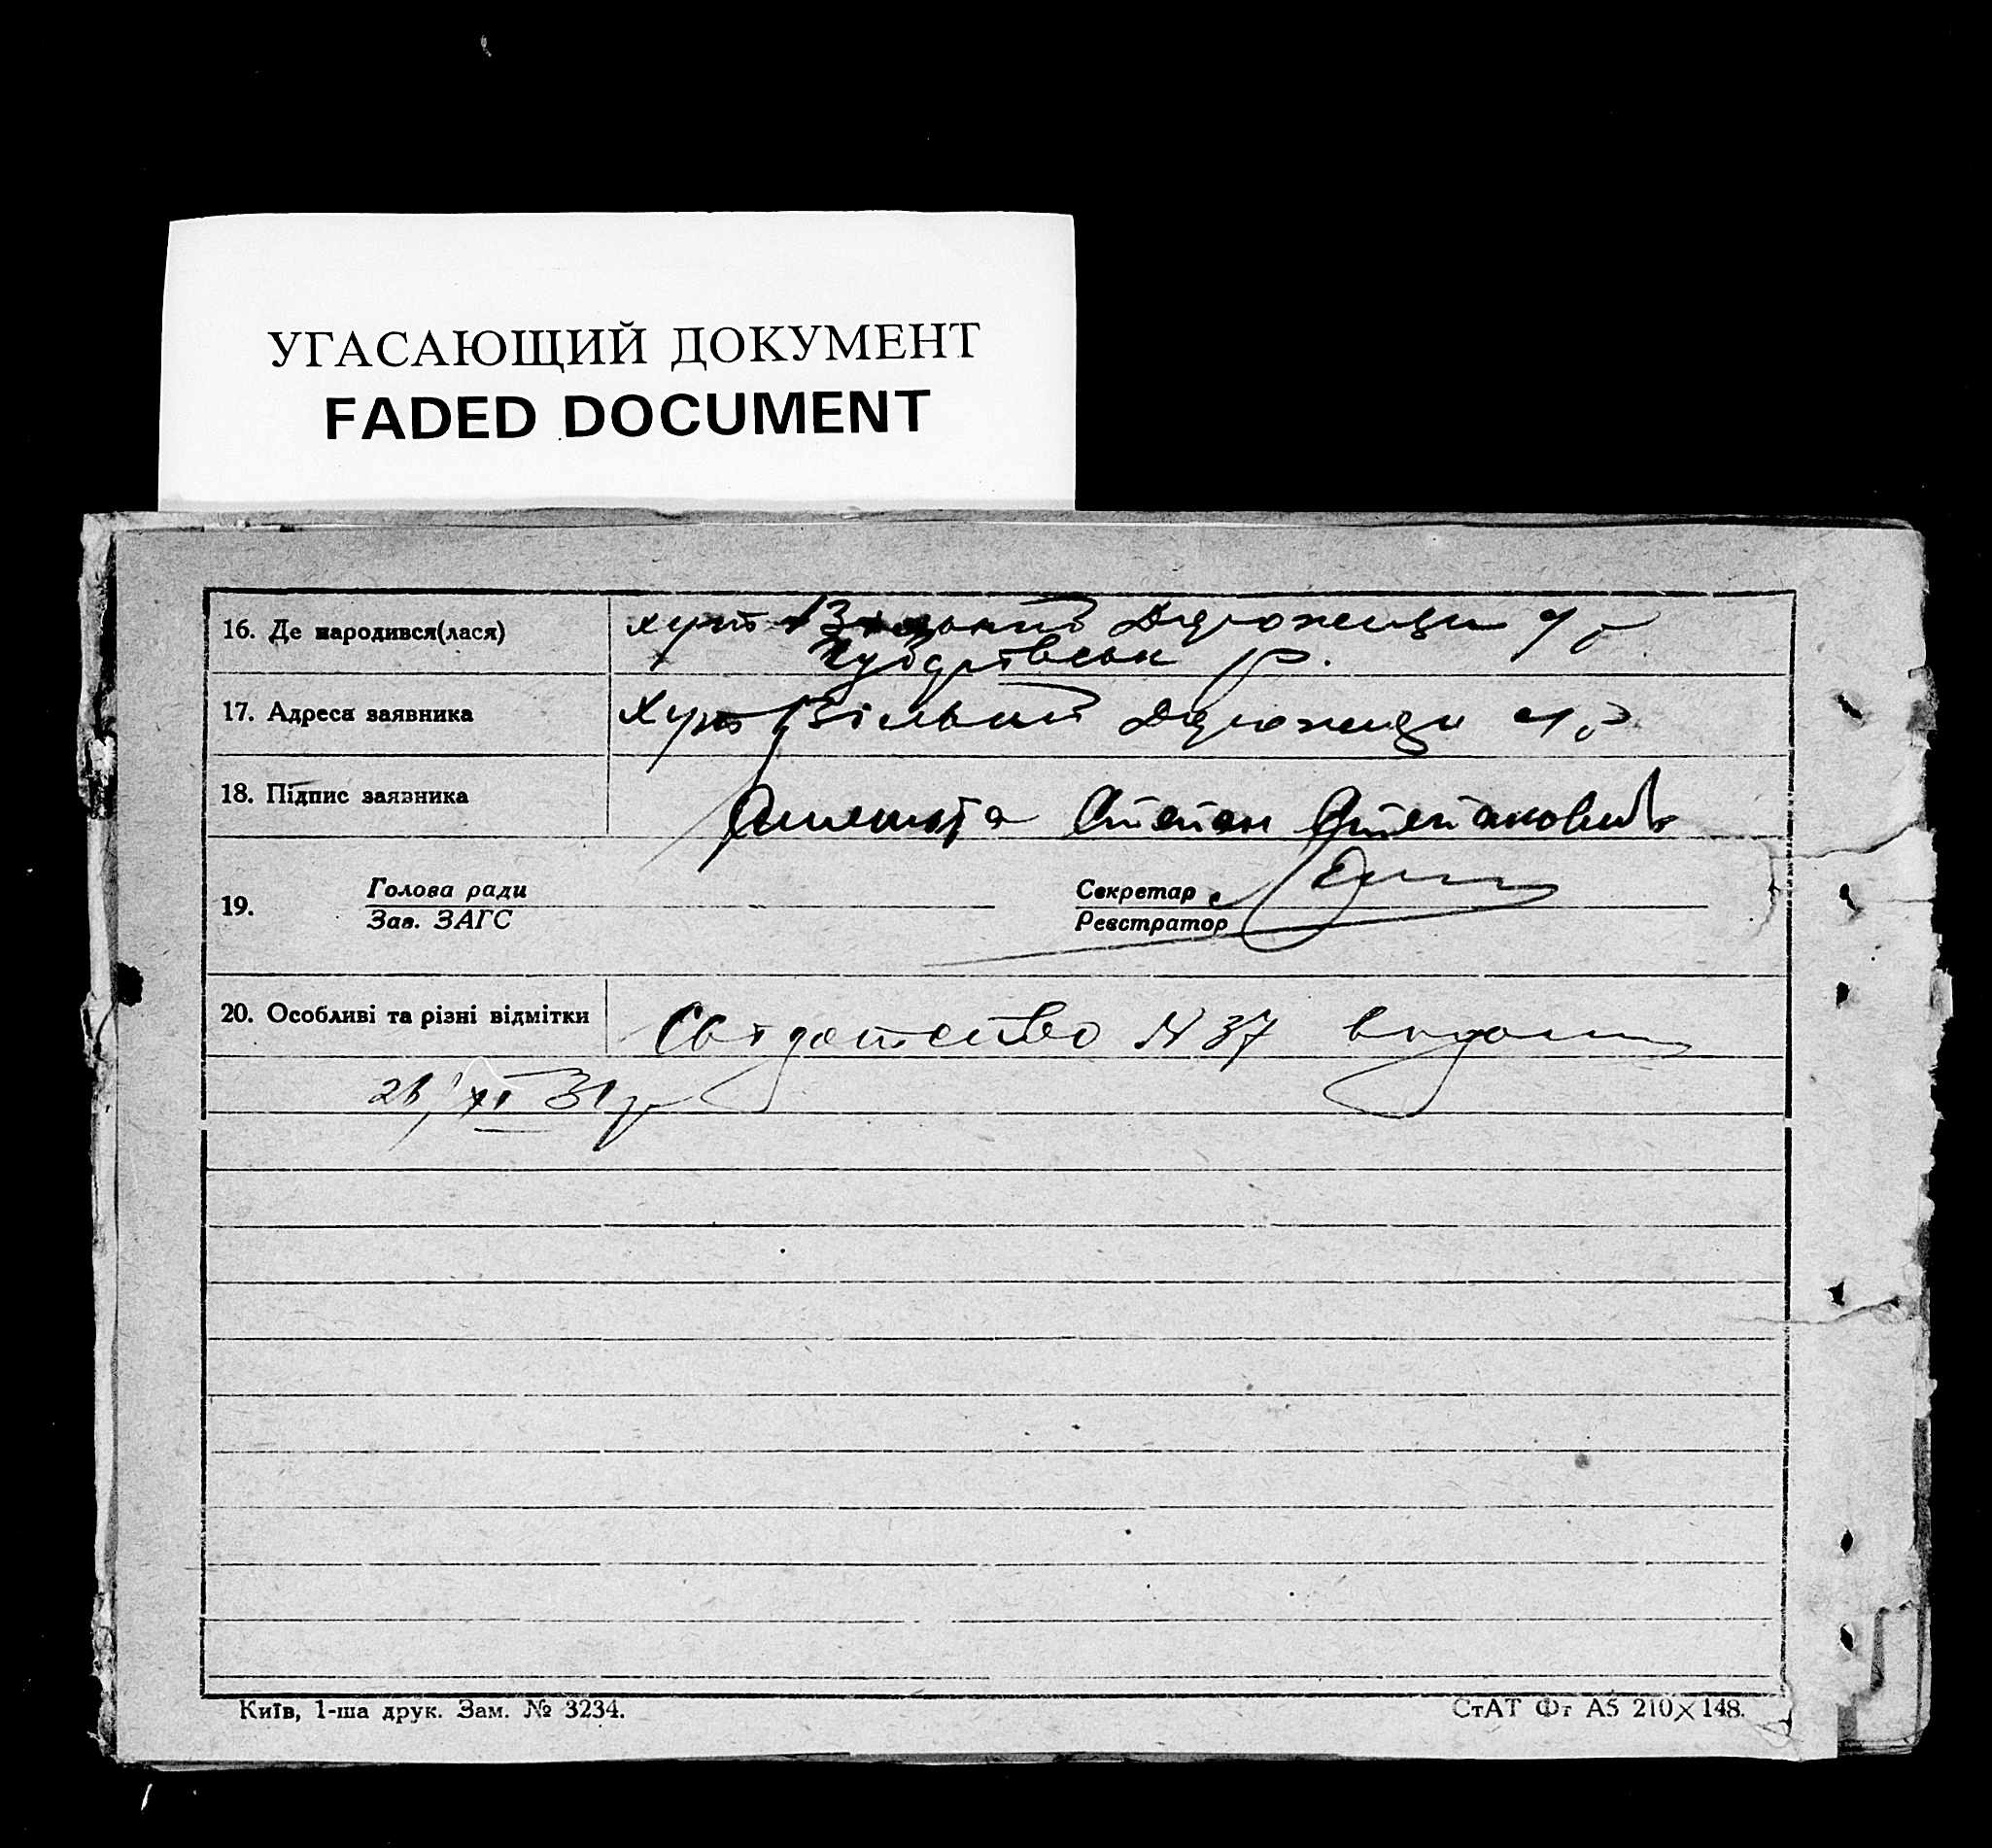 УГАСАЮЩИЙ ДОКУМЕНТ
FADED DOCUMENT
16. Де народився(лася)
хут
р.
17. Адреса заявника
Хут Вільний
18. Підпис заявника
Степан Степанович
19. Голова ради
Зав. ЗАГС
Секретар
Реєстратор
20. Особливі та різні відмітки
Свідотство N 37 видан
XI 31 р
Київ, 1-ша друк. Зам. № 3234.
СтАТ Фг А5 210×148.